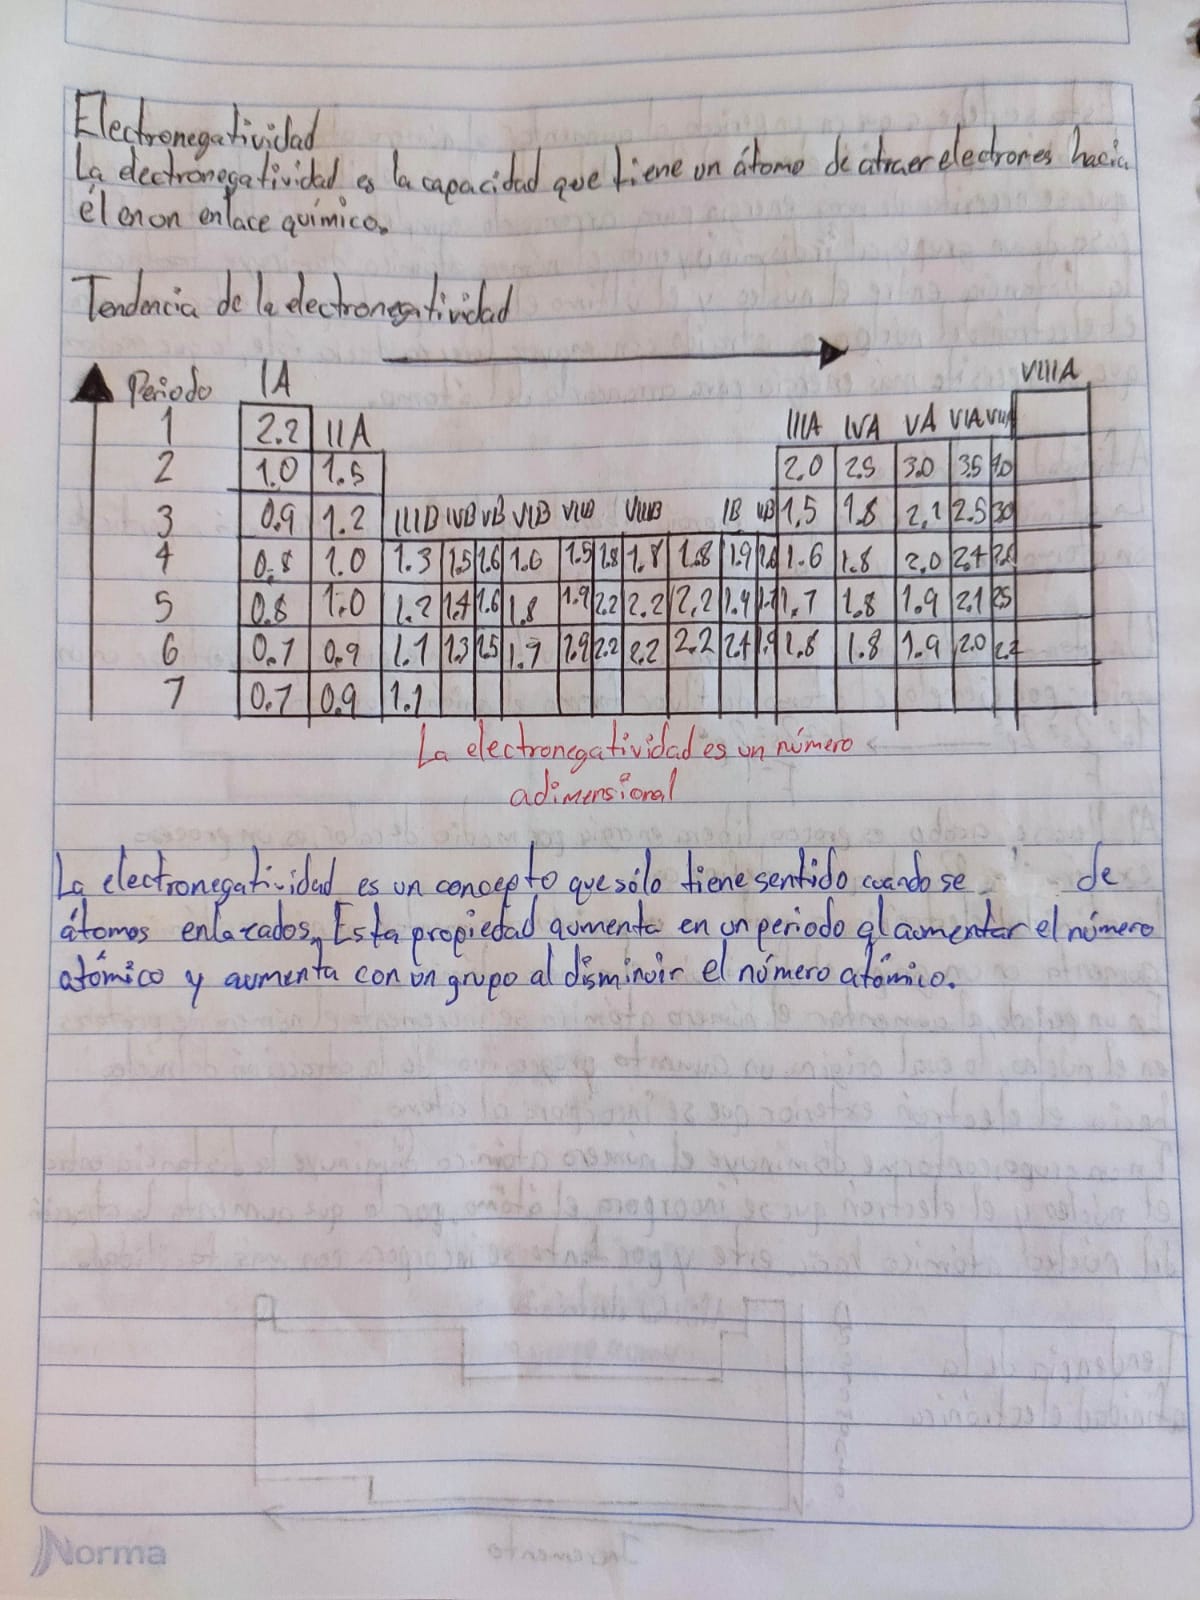 Electronegatividad
La electronegatividad es la capacidad que tiene un átomo de atraer electrones hacia
él en un enlace químico.
Tendencia de la electronegatividad
Periodo IA VIIIA
1 2.2 IIA IIIA IVA VA VIA VIIA
2 1.0 1.5 2.0 2.5 3.0 3.5 4.0
3 0.9 1.2 IIIB IVB VB VIB VIIB VIIIB IB IIB 1.5 1.8 2.1 2.5 30
4 0.8 1.0 1.3 1.5 1.6 1.6 1.5 1.8 1.8 1.8 1.9 1.6 1.8 2.0 2.4
5 0.8 1.0 1.2 1.4 1.6 1.8 1.9 2.2 2.2 2.2 1.9 1.7 1.7 1.8 1.9 2.1 25
6 0.7 0.9 1.1 1.3 1.5 1.7 1.9 2.2 2.2 2.2 2.4 1.9 1.8 1.8 1.9 2.0 2.2
7 0.7 0.9 1.1
La electronegatividad es un número
adimensional
La electronegatividad es un concepto que sólo tiene sentido cuando se de
átomos enlazados. Esta propiedad aumenta en un periodo al aumentar el número
atómico y aumenta con un grupo al disminuir el número atómico.
Norma